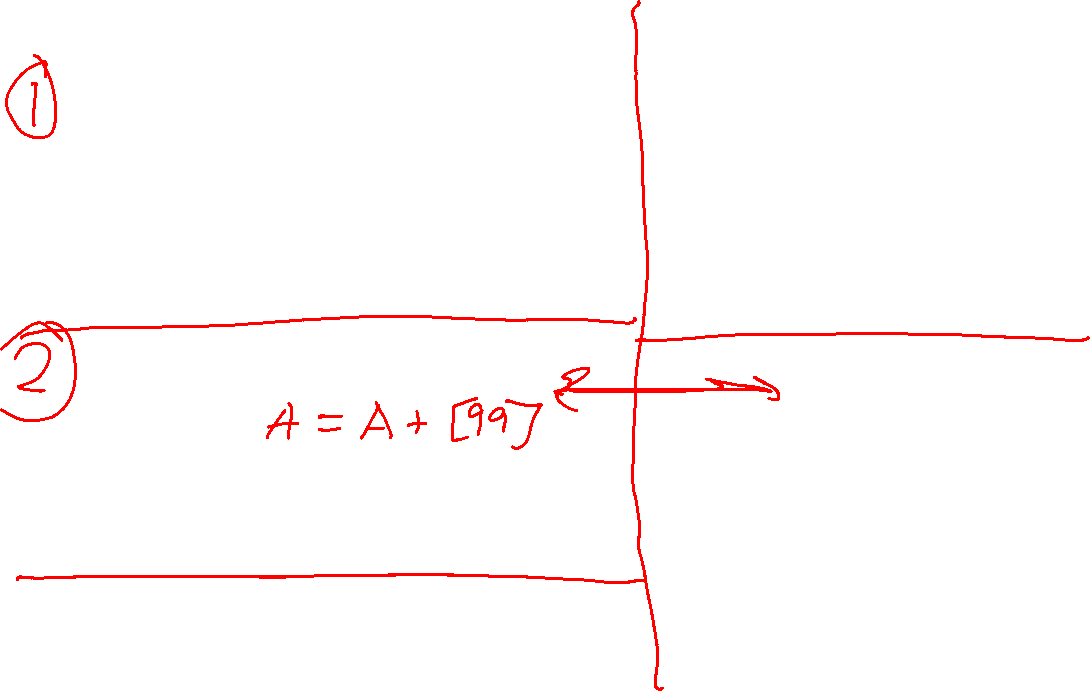 ①
②
A = A + [99]